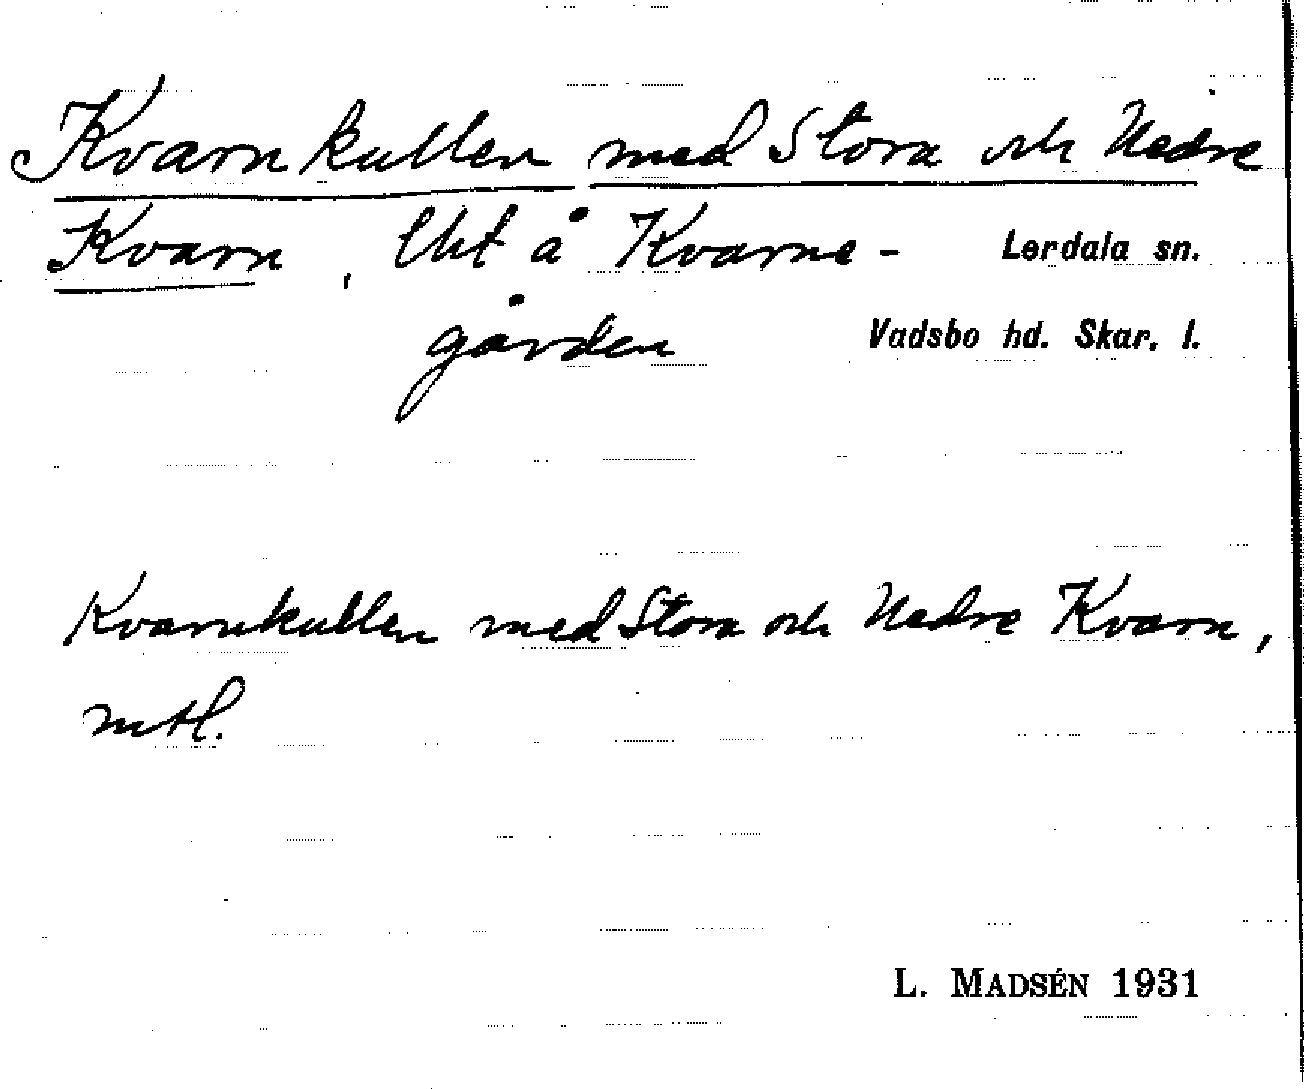 Kvarnkullen med Stora och Nedre
Kvarn, Lht å Kvarne- Lerdala sn.
gården Vadsbo hd. Skar. l.
Kvarnkullen med Stora och Nedre Kvarn,
mtl.
L. MADSÉN 1931